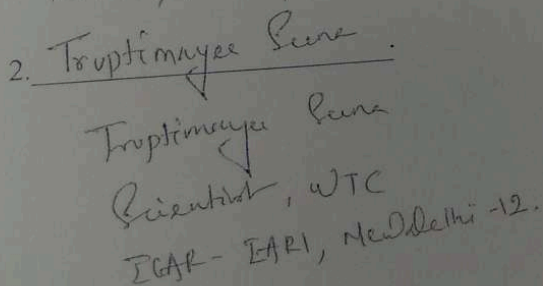 2. Truptimayee Suna .
Truptimayee Suna
Scientist, WTC
ICAR - IARI, New Delhi - 12.